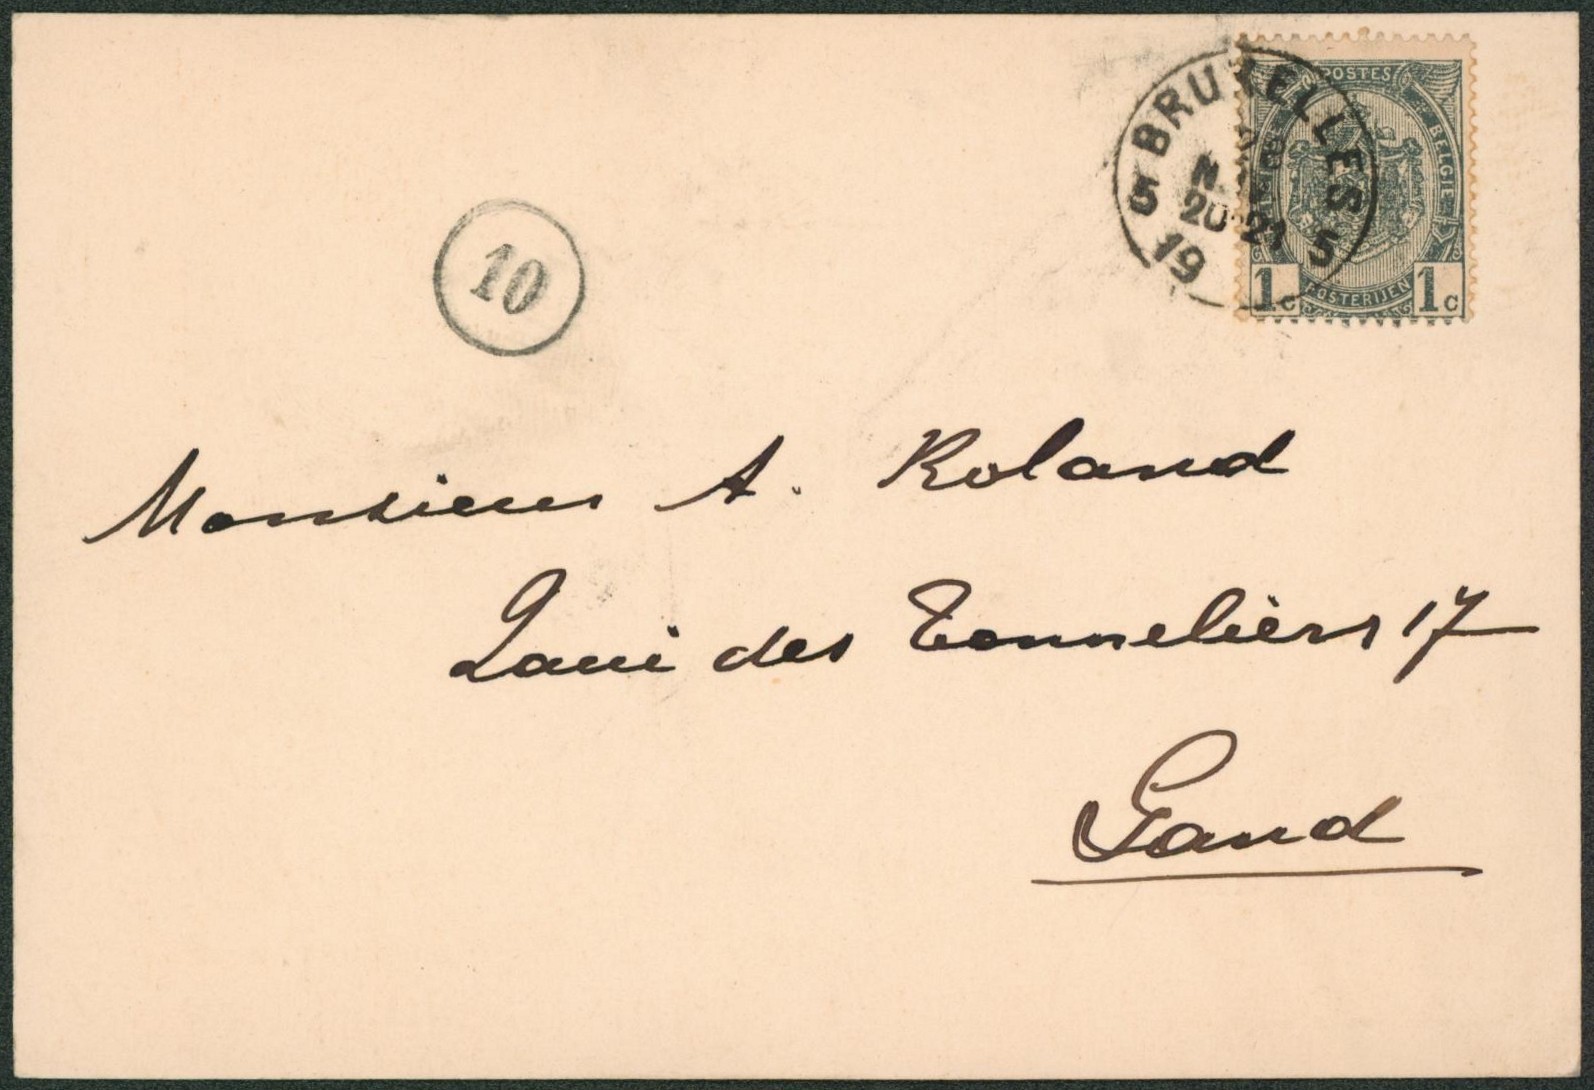 BRUXELLES
5 5
N
20-21
19
POSTES
BELGIE
POSTERIJEN
1c 1c
10
Monsieur A. Roland
Quai des Tonneliers 17
Gand